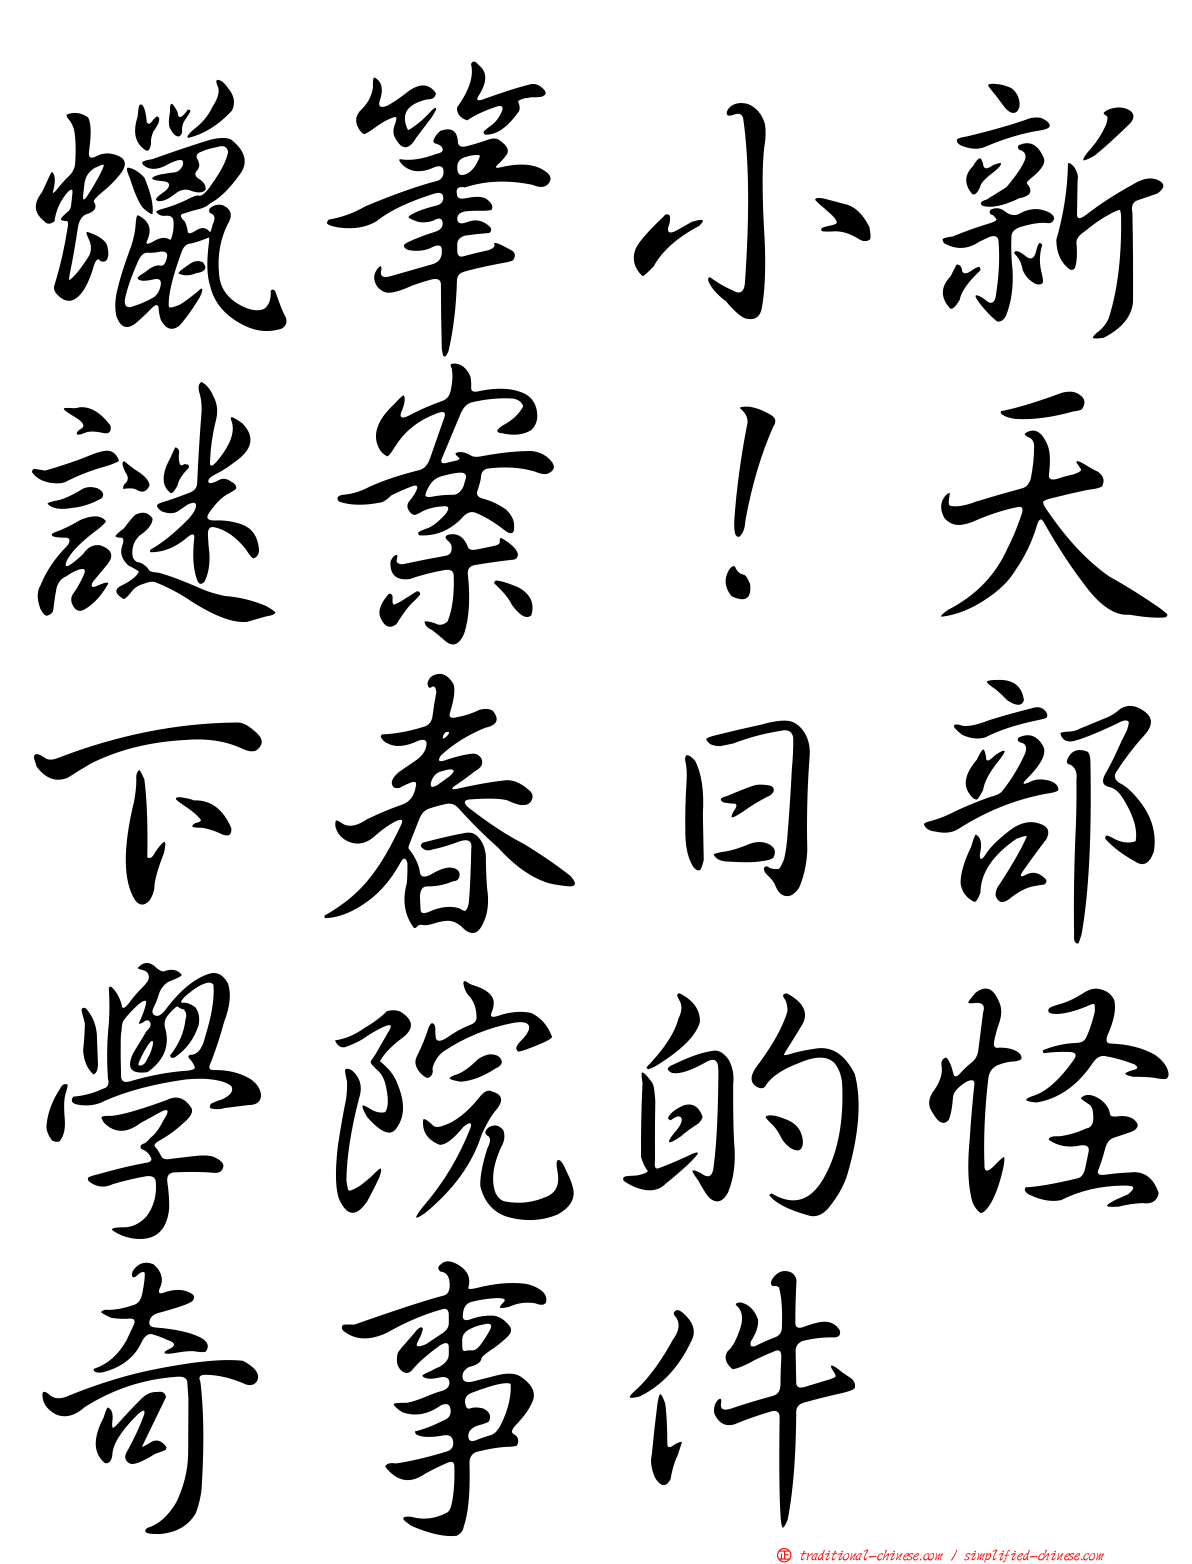 蠟筆小新
謎案！天
下春日部
學院的怪
奇事件
正 traditional-chinese.com / simplified-chinese.com